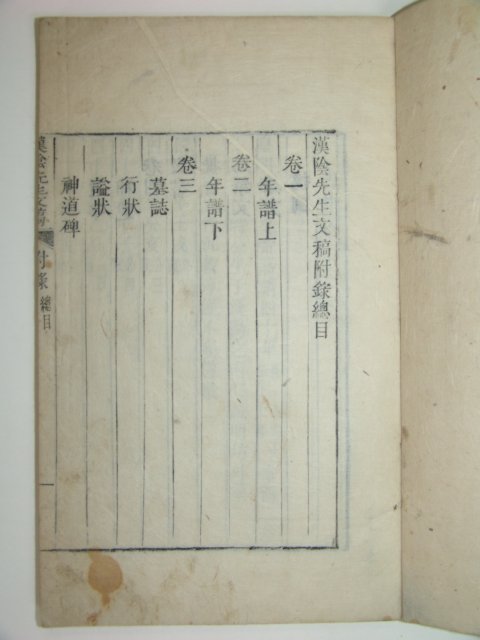 漢陰先生文稿附錄總目
卷一
年譜上
卷二
年譜下
卷三
墓誌
行狀
諡狀
神道碑
漢陰先生文稿 附錄 總目 一